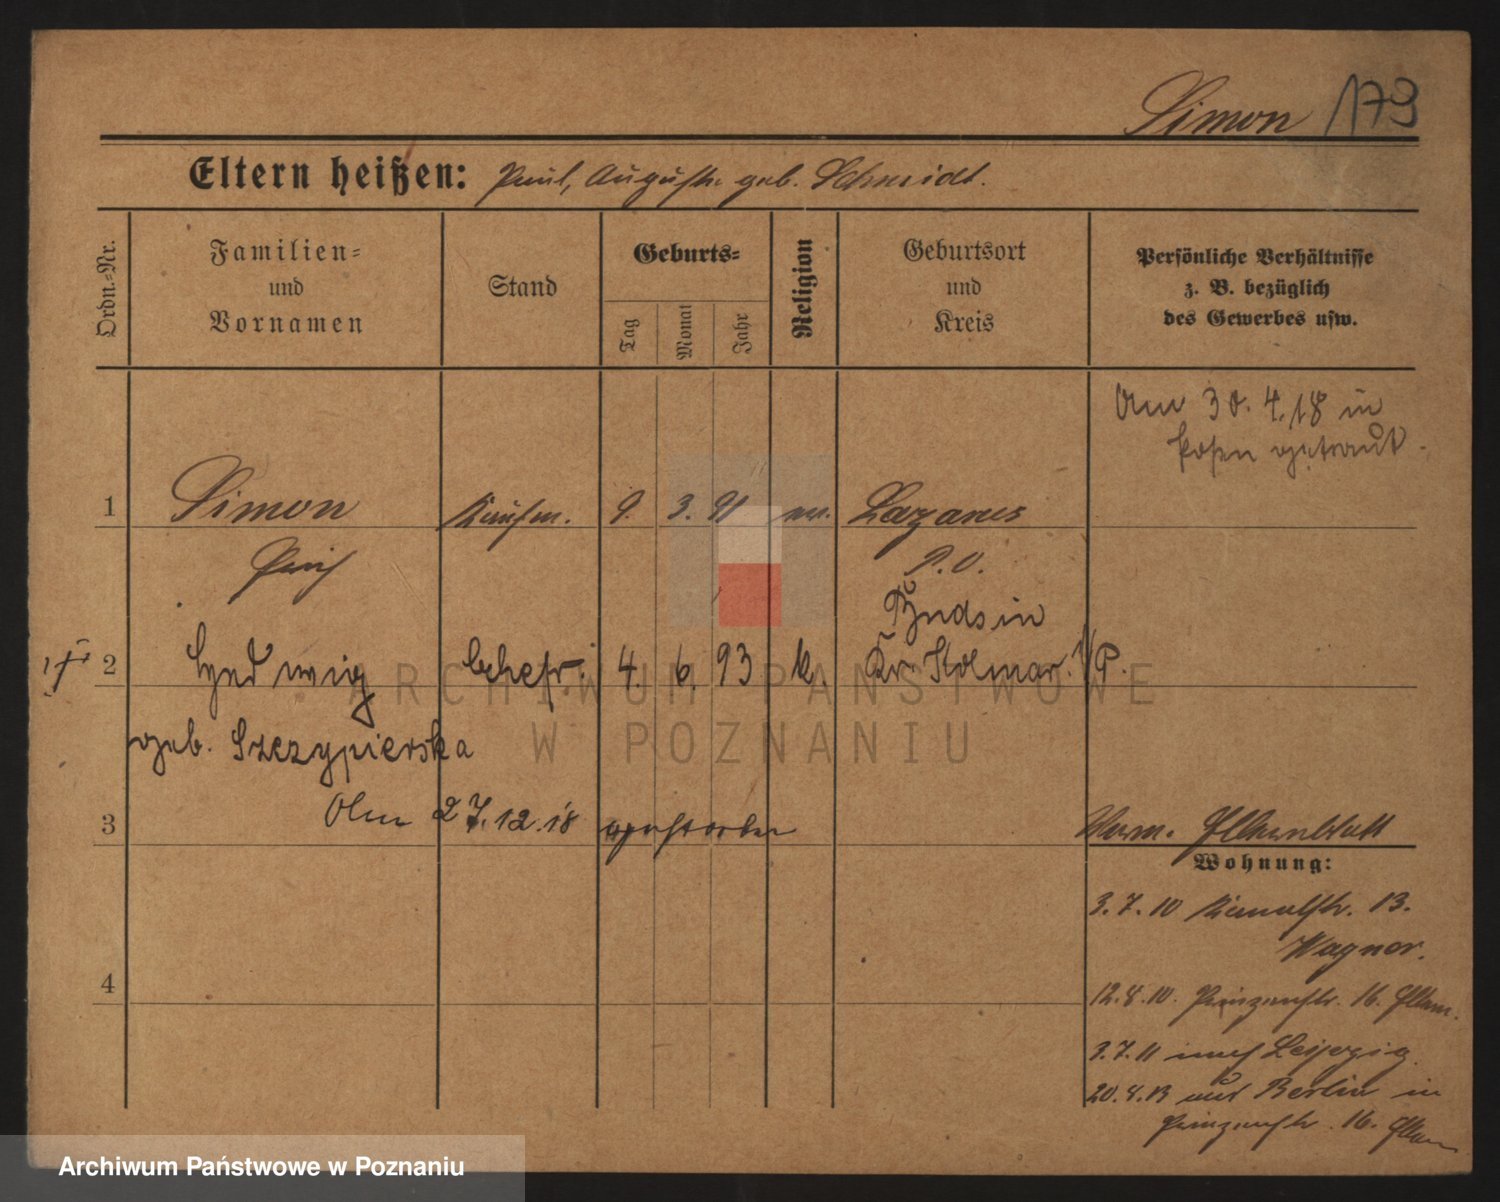 Simon 179
Eltern heißen: Paul, Auguste geb. Schmidt.
Ordn.-Nr.
Familien-
und
Vornamen
Stand
Geburts-
Tag
Monat
Jahr
Religion
Geburtsort
und
Kreis
Persönliche Verhältnisse
z. B. bezüglich
des Gewerbes usw.
Am 30.4.18 in
Posen getraut.
1 Simon Kaufm. 9. 3. 91 Lazarus
P. O.
Budsin
2 Hedwig Ehefr. 4. 6. 93 k. Kr. Kolmar i/P.
geb. Szczypierska
3 Am 27.12.18 gestorben
Wohnung:
3.7.10 Kanalstr. 13.
Wagner.
4
12.8.10. Prinzenstr. 16.
3.7.11 nach Leipzig
20.8.13 aus Berlin in
Prinzenstr. 16.
ARCHIWUM PAŃSTWOWE
W POZNANIU
Archiwum Państwowe w Poznaniu